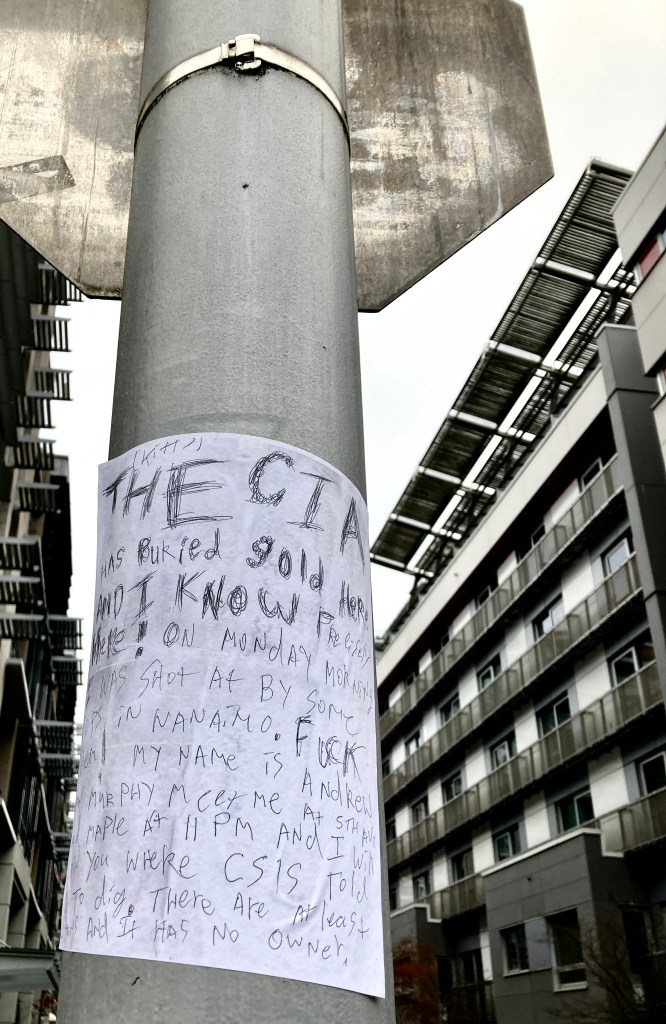 THE CIA
HAS Buried gold Here
AND I KNOW Precisely
Where! ON MONDAY MORNING
I WAS SHOT At BY SOME
IN NANAIMO. FUCK
MY NAME is ANdREW
MURPHY Meet me At 5TH AVE
MAPLE At 11 PM AND I Will
YOU WHERE CSIS Told
To dig. There Are At least
And It HAS NO OWNER.